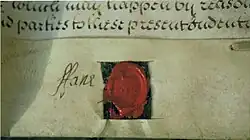 which may happen by reason
id parties to these present Indent
ffane